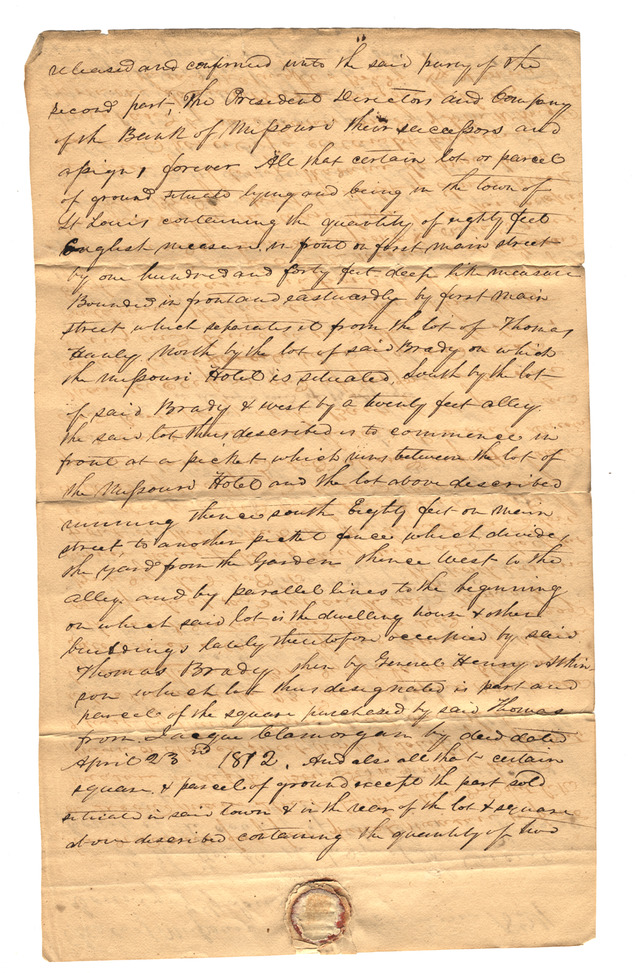 released and confirmed unto the said party of the
second part, The President Directors and Company
of the Bank of Missouri their successors and
assigns, forever All that certain lot or parcel
of ground situate lying and being in the town of
St Louis containing the quantity of eighty feet
English measure in front on first main street
by one hundred and forty feet deep like measure
Bounded in front and eastwardly by first Main
street which separates it from the lot of Thomas
Hanly North by the lot of said Brady on which
the Missouri Hotel is situated, south by the lot
of said Brady & west by a twenty feet alley.
the said lot thus described is to commence in
front at a picket which runs between the lot of
the Missouri Hotel and the lot above described
running thence south Eighty feet on Main
street, to another picket fence which divides
the yard from the Garden thence West to the
alley and by parallel lines to the beginning
on which said lot is the dwelling house & other
buildings lately theretofore occupied by said
Thomas Brady then by General Henry Atkin-
son which lot thus designated is part and
parcel of the square purchased by said Thomas
from Jacque Clamorgan by deed dated
April 23rd 1812. And also all that certain
square & parcel of ground except the part sold
situate in said town & in the rear of the lot & square
above described containing the quantity of two